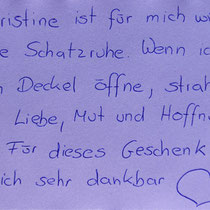 ristine ist für mich w
e Schatzruhe. Wenn ic
n Deckel öffne, strah
Liebe, Mut und Hoffnu
Für dieses Geschenk
ich sehr dankbar